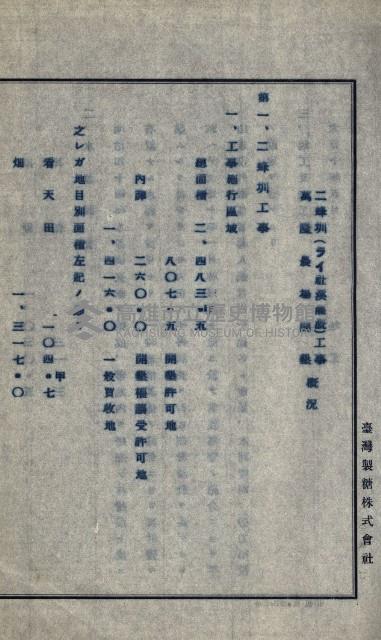 二峰圳(ライ社溪■■)工事
萬隆農場開墾 概況
第一、二峰圳工事
一、工事施行區域
總面積 二、四八三・五
內譯 八〇七・五 開墾許可地
二六〇・〇 開墾權讓受許可地
一、四一六・〇 一般買收地
之レガ地目別面積左記ノ
甲
看天田 一〇四・七
畑 一、三一七・〇
臺灣製糖株式會社
高雄市立歷史博物館
KAOHSIUNG MUSEUM OF HISTORY